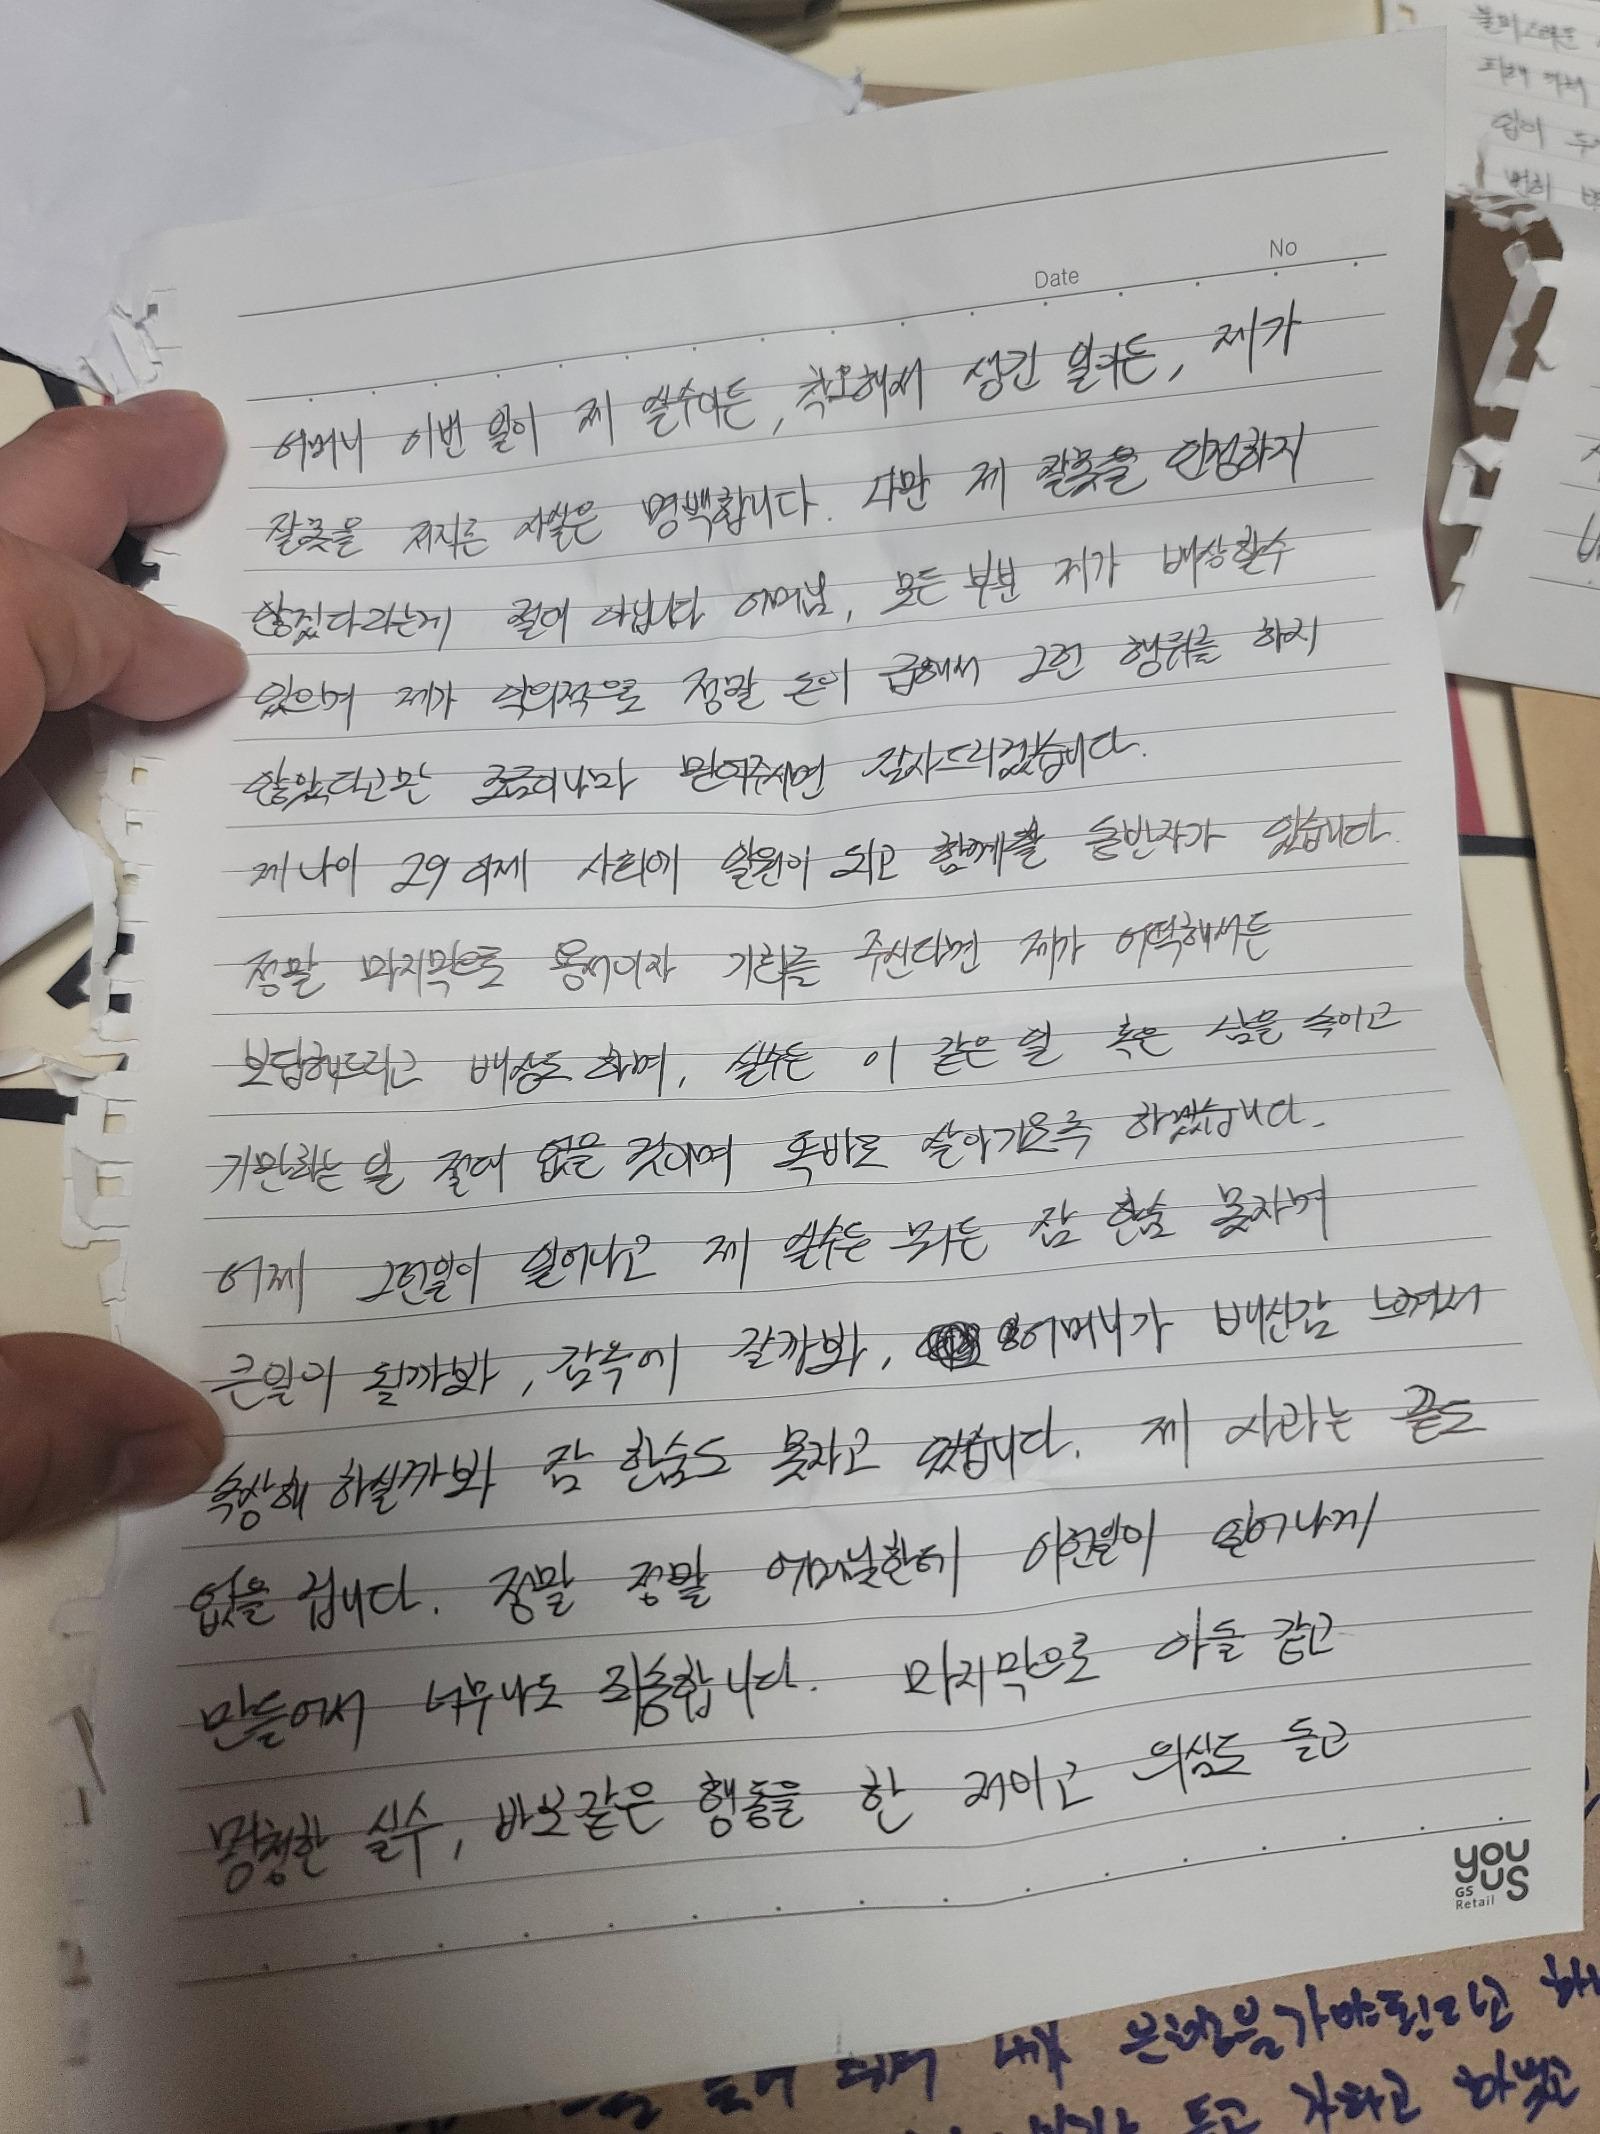 Date No
어머니 이번 일이 제 실수이든, 착오해서 생긴 일이든, 제가
잘못을 저지른 사실은 명백합니다. 다만 제 잘못을 인정하지
않겠다라는게 절대 아닙니다 어머님, 모든 부분 제가 배상할수
있으며 제가 악의적으로 정말 돈이 급해서 그런 행위를 하지
않았다고만 조금이나마 믿어주시면 감사드리겠습니다.
제 나이 29 이제 사회에 일원이 되고 함께할 동반자가 있습니다.
정말 마지막으로 용서이자 기회를 주신다면 제가 어떡해서든
보답해드리고 배상도 하며, 실수든 이 같은 일 혹은 남을 속이고
기만하는 일 절대 없을 것이며 똑바로 살아가도록 하겠습니다.
어제 그런일이 일어나고 제 실수든 뭐든 잠 한숨 못자며
큰일이 될까봐, 감옥에 갈까봐, 어머니가 배신감 느껴서
속상해 하실까봐 잠 한숨도 못자고 있습니다. 제 사과는 끝도
없을 겁니다. 정말 정말 어머님한테 이런일이 일어나게
만들어서 너무나도 죄송합니다. 마지막으로 아들 같고
멍청한 실수, 바보같은 행동을 한 저이고 의심도 들고
you
us
GS
Retail